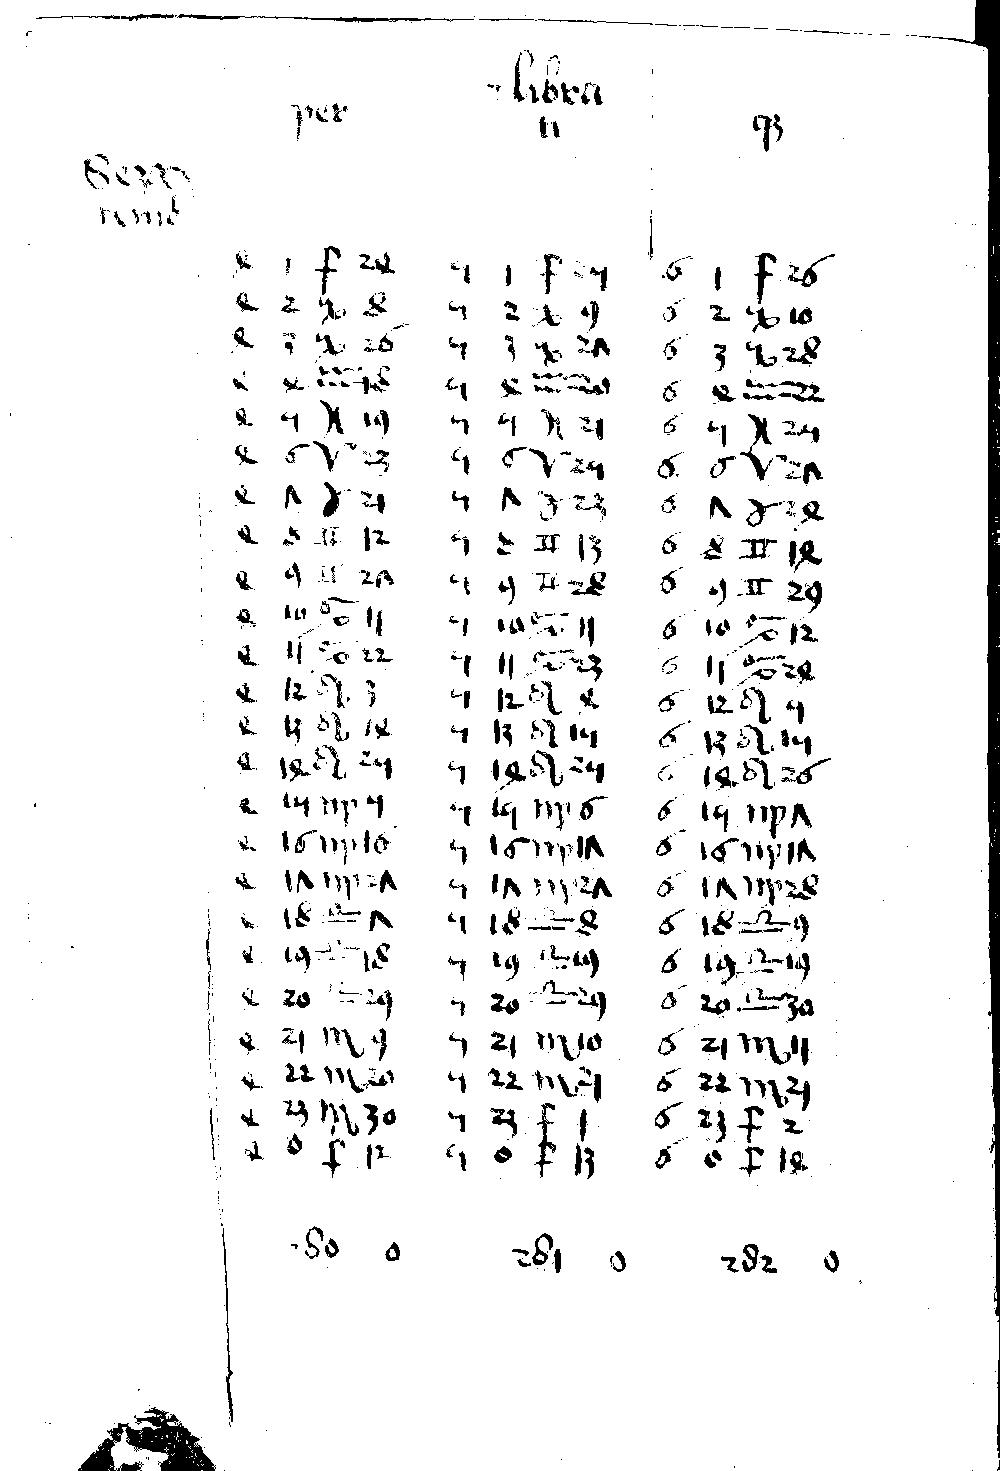 libra
per n
4 1 ♐ 24 5 1 ♐ 25 6 1 ♐ 26
4 2 ♑ 8 5 2 ♑ 9 6 2 ♑ 10
4 3 ♑ 26 5 3 ♑ 27 6 3 ♑ 28
4 4 ♒ 18 5 4 ♒ 20 6 4 ♒ 22
4 5 ♓ 19 5 5 ♓ 21 6 5 ♓ 25
4 6 ♈ 23 5 6 ♈ 25 6 6 ♈ 27
4 7 ♉ 21 5 7 ♉ 23 6 7 ♉ 24
4 8 ♊ 12 5 8 ♊ 13 6 8 ♊ 14
4 9 ♊ 27 5 9 ♊ 28 6 9 ♊ 29
4 10 ♋ 11 5 10 ♋ 11 6 10 ♋ 12
4 11 ♋ 22 5 11 ♋ 23 6 11 ♋ 24
4 12 ♌ 3 5 12 ♌ 4 6 12 ♌ 5
4 13 ♌ 14 5 13 ♌ 15 6 13 ♌ 15
4 14 ♌ 25 5 14 ♌ 25 6 14 ♌ 26
4 15 ♍ 5 5 15 ♍ 6 6 15 ♍ 7
4 16 ♍ 16 5 16 ♍ 17 6 16 ♍ 17
4 17 ♍ 27 5 17 ♍ 27 6 17 ♍ 28
4 18 ♎ 7 5 18 ♎ 8 6 18 ♎ 9
4 19 ♎ 18 5 19 ♎ 19 6 19 ♎ 19
4 20 ♎ 29 5 20 ♎ 29 6 20 ♎ 30
4 21 ♏ 9 5 21 ♏ 10 6 21 ♏ 11
4 22 ♏ 20 5 22 ♏ 21 6 22 ♏ 21
4 23 ♏ 30 5 23 ♐ 1 6 23 ♐ 2
4 0 ♐ 12 5 0 ♐ 13 6 0 ♐ 14
280 0 281 0 282 0